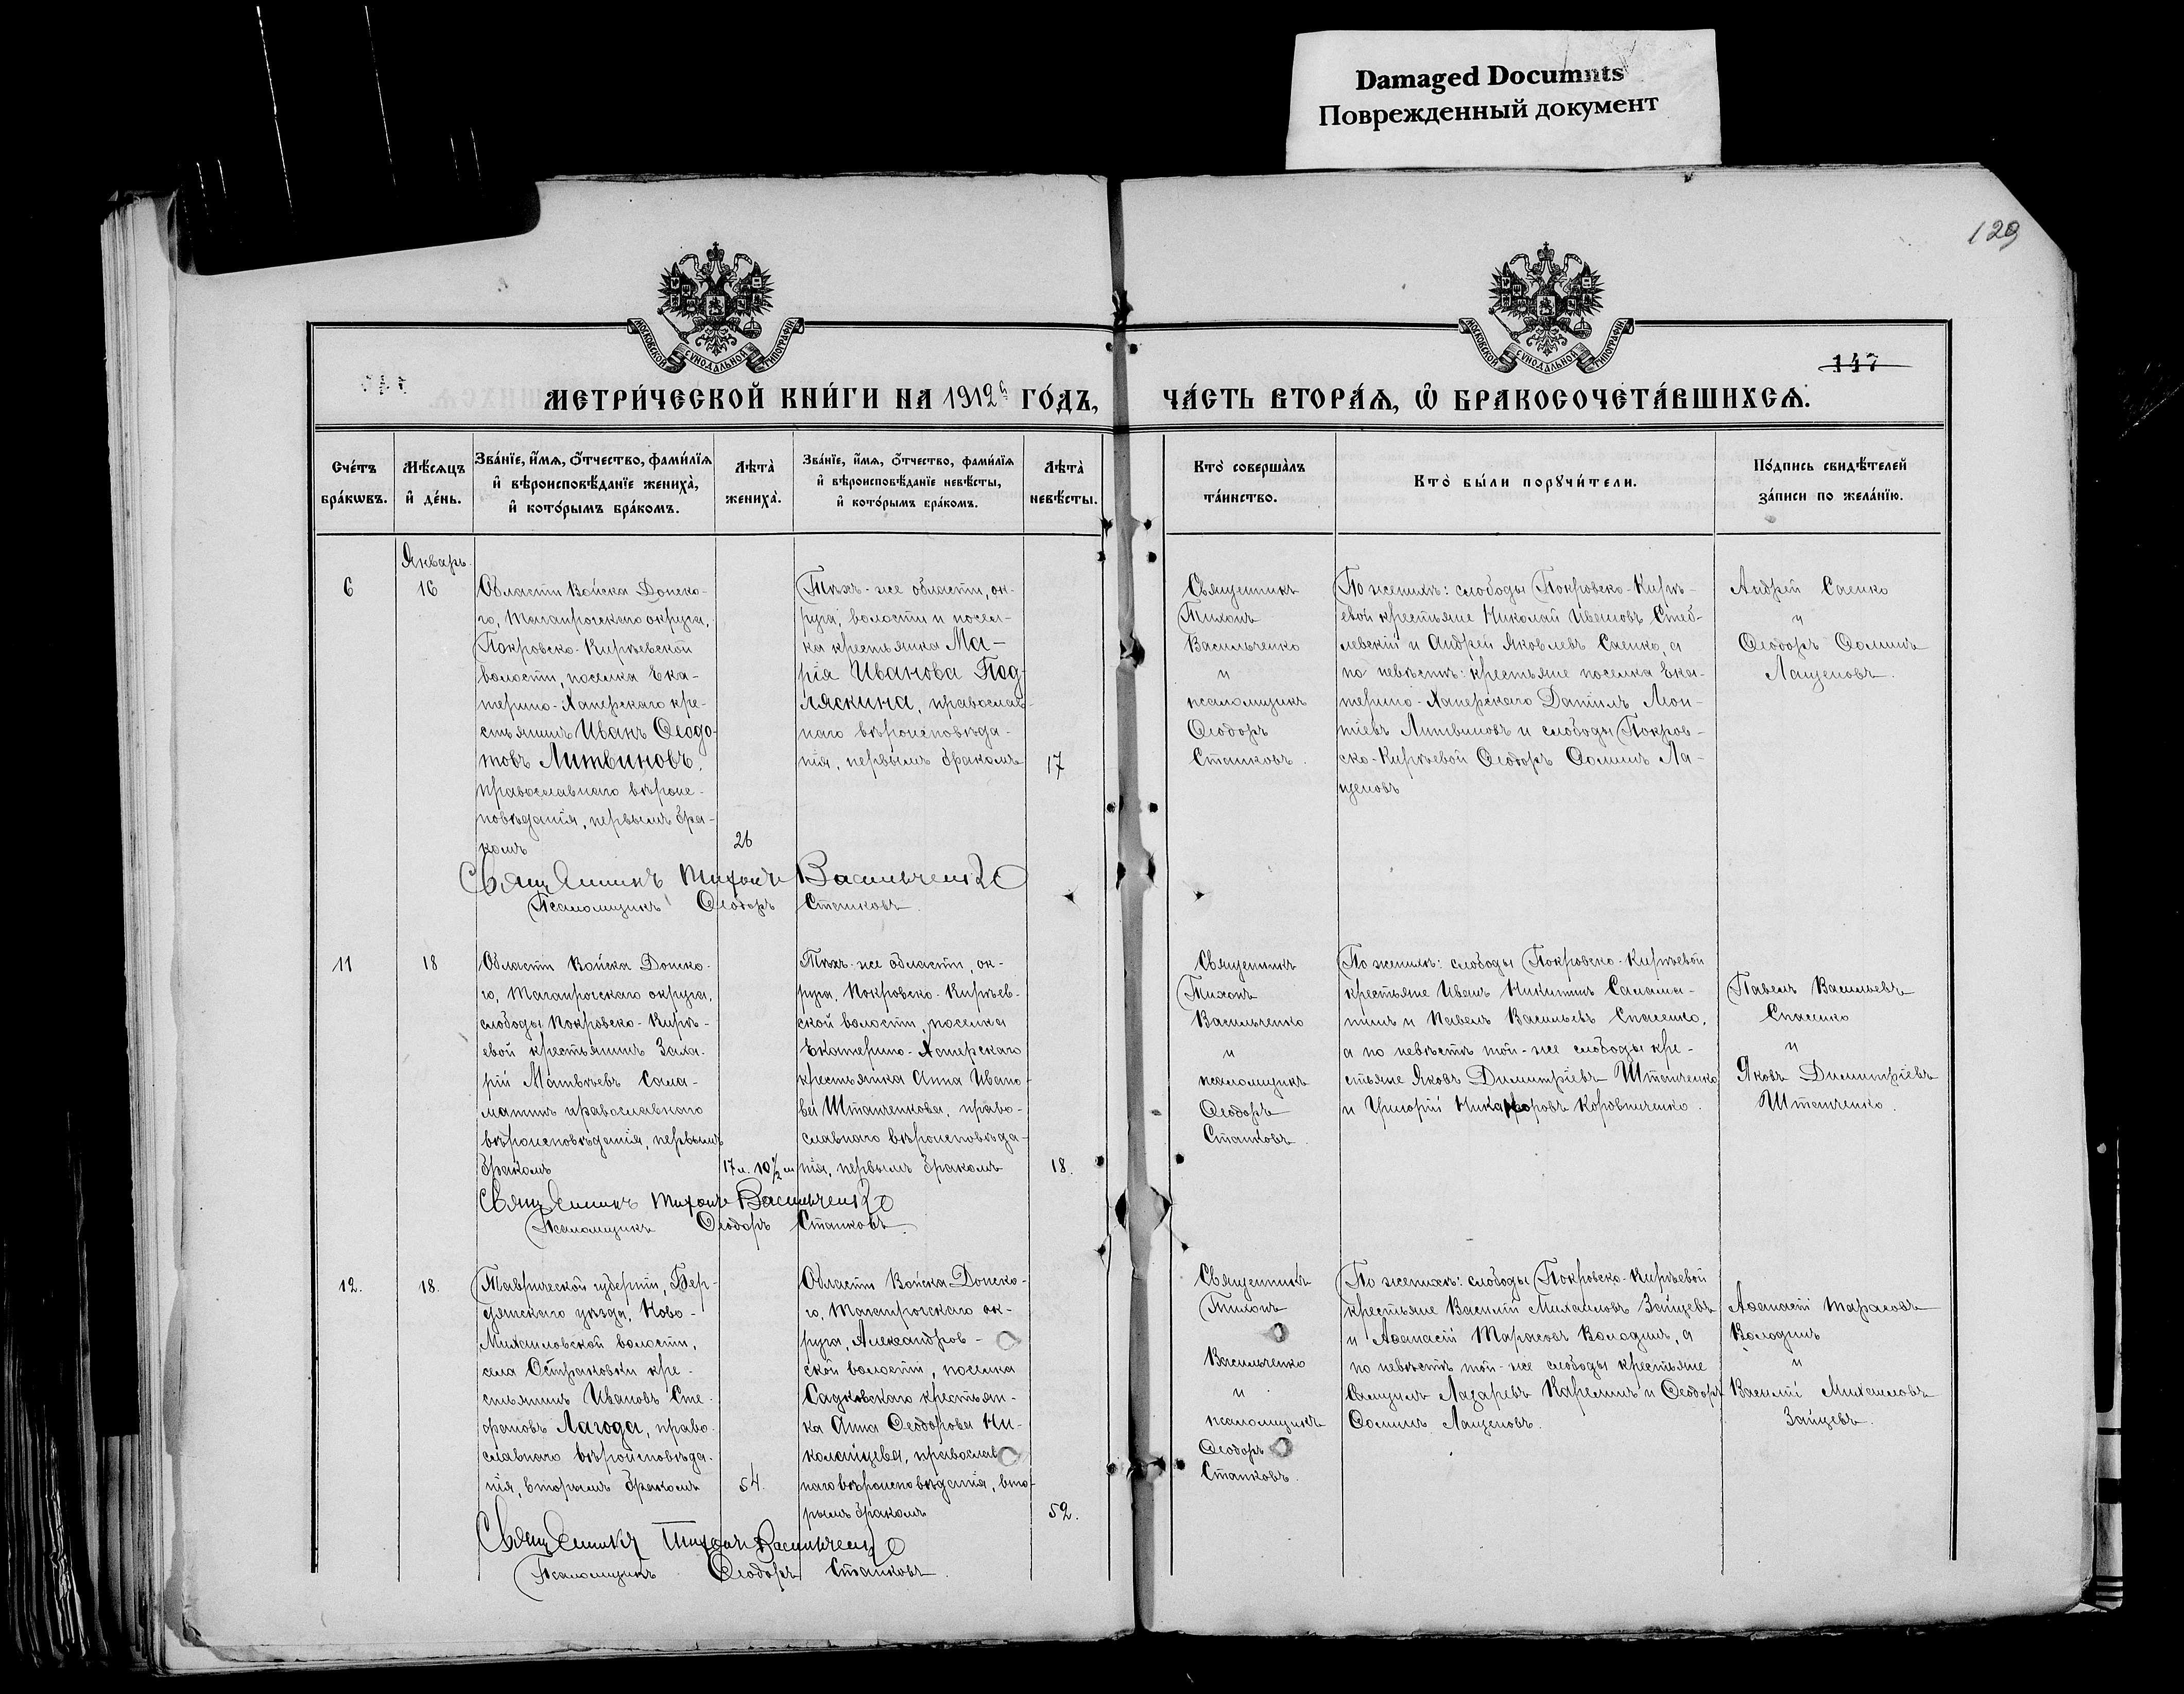 Damaged Documnts
Поврежденный документ
129
МОСКОВСКОЙ СѴНОДАЛЬНОЙ ТИПОГРАФІИ
МОСКОВСКОЙ СѴНОДАЛЬНОЙ ТИПОГРАФІИ
147
МЕТРИ́ЧЕСКОЙ КНИ́ГИ НА 1912й ГО́ДЪ,
ЧА́СТЬ ВТОРА́Ѧ, Ѽ БРАКОСОЧЕТА́ВШИХСѦ.
Сче́тъ
бра́кѡвъ.
Мѣ́сѧцъ
и҆ де́нь.
Зва́нїе, и҆́мѧ, ѻ҆́тчество, фами́лїѧ
и҆ вѣроисповѣ́данїе жениха̀,
и҆ кото́рымъ бра́комъ.
Лѣ́та̀
жениха̀.
Зва́нїе, и҆́мѧ, ѻ҆́тчество, фами́лїѧ
и҆ вѣроисповѣ́данїе невѣ́сты,
и҆ кото́рымъ бра́комъ.
Лѣ́та̀
невѣ́сты.
Кто̀ соверша̀лъ
та́инство.
Кто̀ бы́ли порꙋчи́тели.
По́дпись свидѣ́телей
за́писи по жела́нїю.
Январь.
6
16
Области Войска Донско-
го, Таганрогскаго округа,
Покровско-Кирѣевской
волости, поселка Ека-
терино-Хаперскаго кре-
стьянинъ Иванъ Ѳеодо-
товъ Литвиновъ,
православнаго вѣроис-
повѣданія, первымъ бра-
комъ
26
Тѣхъ-же области, ок-
руга, волости и посел-
ка крестьянка Ма-
рія Иванова Под-
ляскина, православ-
наго вѣроисповѣда-
нія, первымъ бракомъ
17
Священникъ
Тихонъ
Васильченко
и
псаломщикъ
Ѳеодоръ
Станковъ.
По женихѣ: слободы Покровско-Кирѣ-
евой крестьяне Николай Ивановъ Стеб-
левскій и Андрей Яковлевъ Саенко, а
по невѣстѣ: крестьяне поселка Ека-
терино-Хаперскаго Даніилъ Леон-
тіевъ Литвиновъ и слободы Покров-
ско-Кирѣевой Ѳеодоръ Ѳоминъ Ла-
щеновъ
Андрей Саенко
и
Ѳеодоръ Ѳоминъ
Лащеновъ.
Священникъ Тихонъ Васильченко
Псаломщикъ Ѳеодоръ Станковъ.
11
18
Области Войска Донско-
го, Таганрогскаго округа,
слободы Покровско-Кирѣ-
евой крестьянинъ Заха-
рій Матвѣевъ Сала-
матинъ православнаго
вѣроисповѣданія, первымъ
бракомъ
17 л. 10½ м
Тѣхъ-же области, ок-
руга, Покровско-Кирѣев-
ской волости, поселка
Екатерино-Хаперскаго
крестьянка Анна Ивано-
ва Штанченкова, право-
славнаго вѣроисповѣда-
нія, первымъ бракомъ
18.
Священникъ
Тихонъ
Васильченко
и
псаломщикъ
Ѳеодоръ
Станковъ.
По женихѣ: слободы Покровско-Кирѣевой
крестьяне Иванъ Никитинъ Салама-
тинъ и Павелъ Васильевъ Спасенко,
а по невѣстѣ той-же слободы кре-
стьяне Яковъ Димитріевъ Штанченко
и Григорій Никафоровъ Коровниченко.
Павелъ Васильевъ
Спасенко
и
Яковъ Димитріевъ
Штанченко.
Священникъ Тихонъ Васильченко
Псаломщикъ Ѳеодоръ Станковъ.
12.
18.
Таврической губерніи, Бер-
дянскаго уѣзда, Ново-
Михаиловской волости,
села Остриковки кре-
стьянинъ Ивановъ Сте-
фановъ Лагода, право-
славнаго вѣроисповѣда-
нія, вторымъ бракомъ
54.
Области Войска Донско-
го, Таганрогскаго ок-
руга, Александров-
ской волости, поселка
Садковскаго крестьян-
ка Анна Ѳеодорова Ни-
колайцева, православ
наго вѣроисповѣданія, вто-
рымъ бракомъ
52.
Священникъ
Тихонъ
Васильченко
и
псаломщикъ
Ѳеодоръ
Станковъ.
По женихѣ: слободы Покровско-Кирѣевой
крестьяне Василій Михаиловъ Зайцевъ
и Аѳанасій Тарасовъ Володинъ, а
по невѣстѣ той-же слободы крестьяне
Самуилъ Лазаревъ Карелинъ и Ѳеодоръ
Ѳоминъ Лащеновъ.
Аѳанасій Тарасовъ
Володинъ
и
Василій Михаиловъ
Зайцевъ.
Священникъ Тихонъ Васильченко
Псаломщикъ Ѳеодоръ Станковъ.